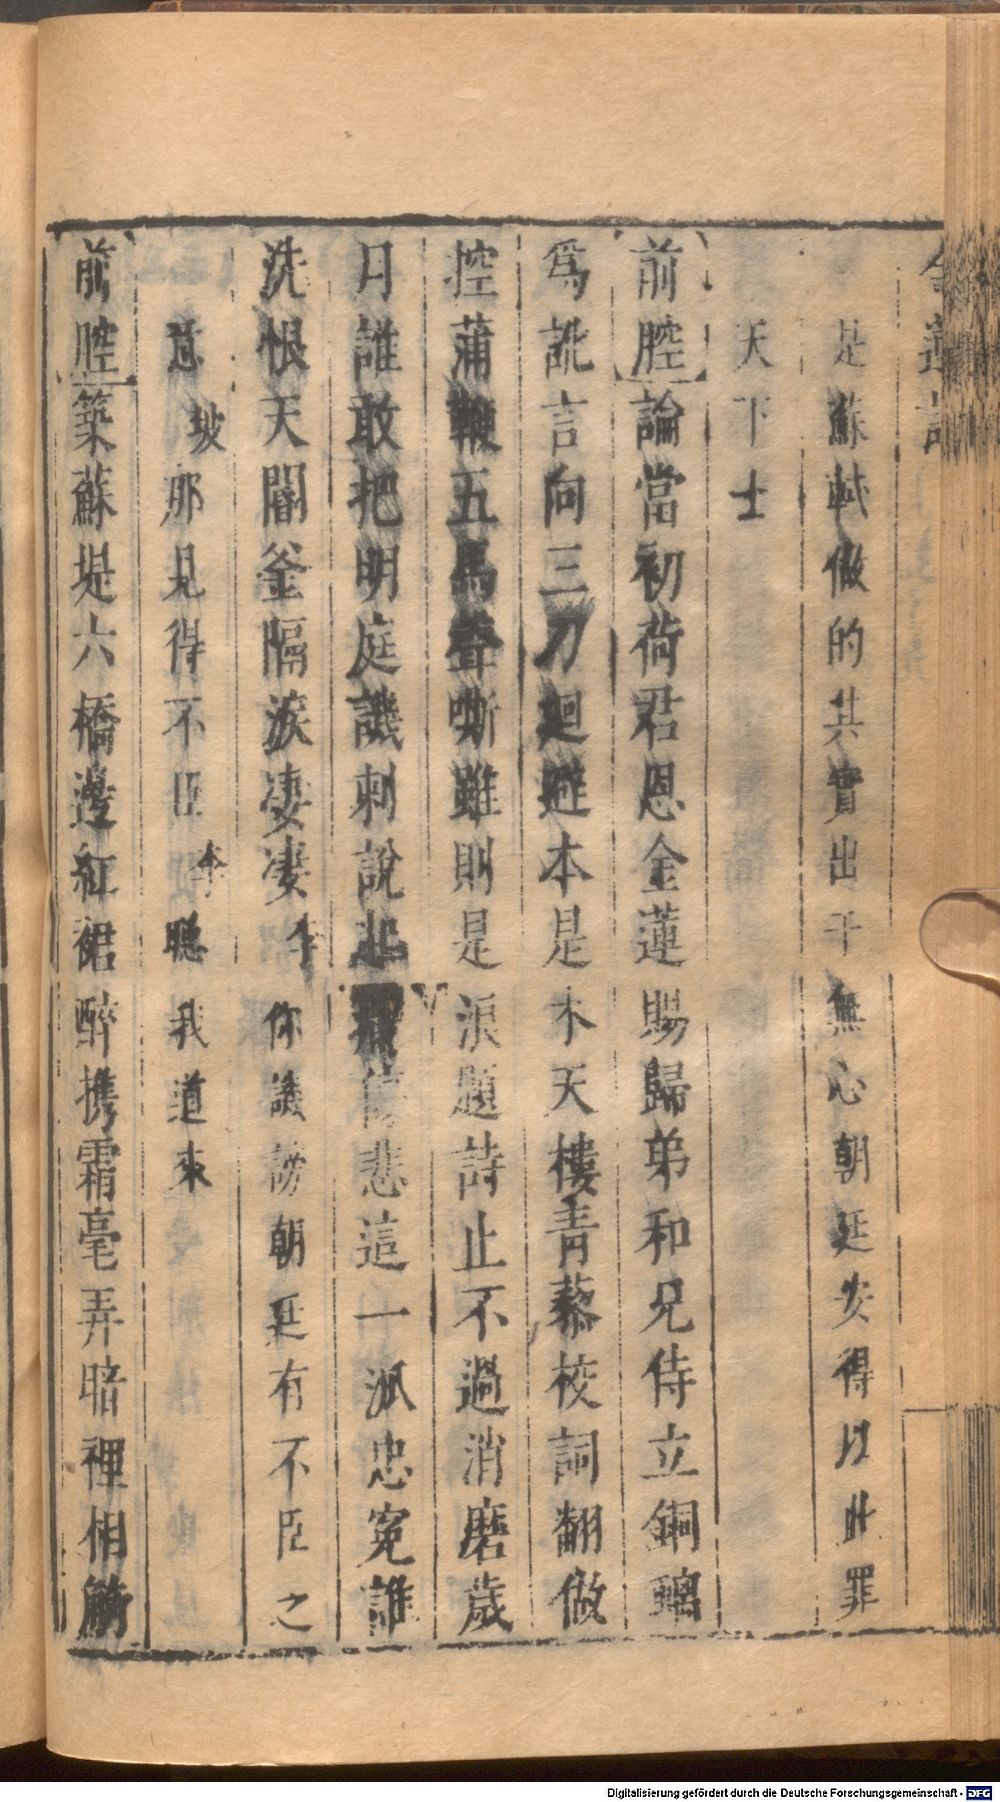 金蓮記
是蘇軾做的其實出于無心朝廷安得以此罪
天下士
前腔論當初荷君恩金蓮賜歸弟和兄侍立銅螭
爲訛言向三刀廻避本是木天樓靑藜校詞翻做
控蒲鞭五馬聲嘶雖則是浪題詩止不過消磨歲
月誰敢把明庭譏刺說起悲這一派忠寃誰
洗恨天閽釜隔淚凄凄李你譏謗朝廷有不臣之
意坡那見得不臣李聽我道來
前腔築蘇堤六橋邊紅裙醉携霜毫弄暗裡相觭
Digitalisierung gefördert durch die Deutsche Forschungsgemeinschaft - DFG